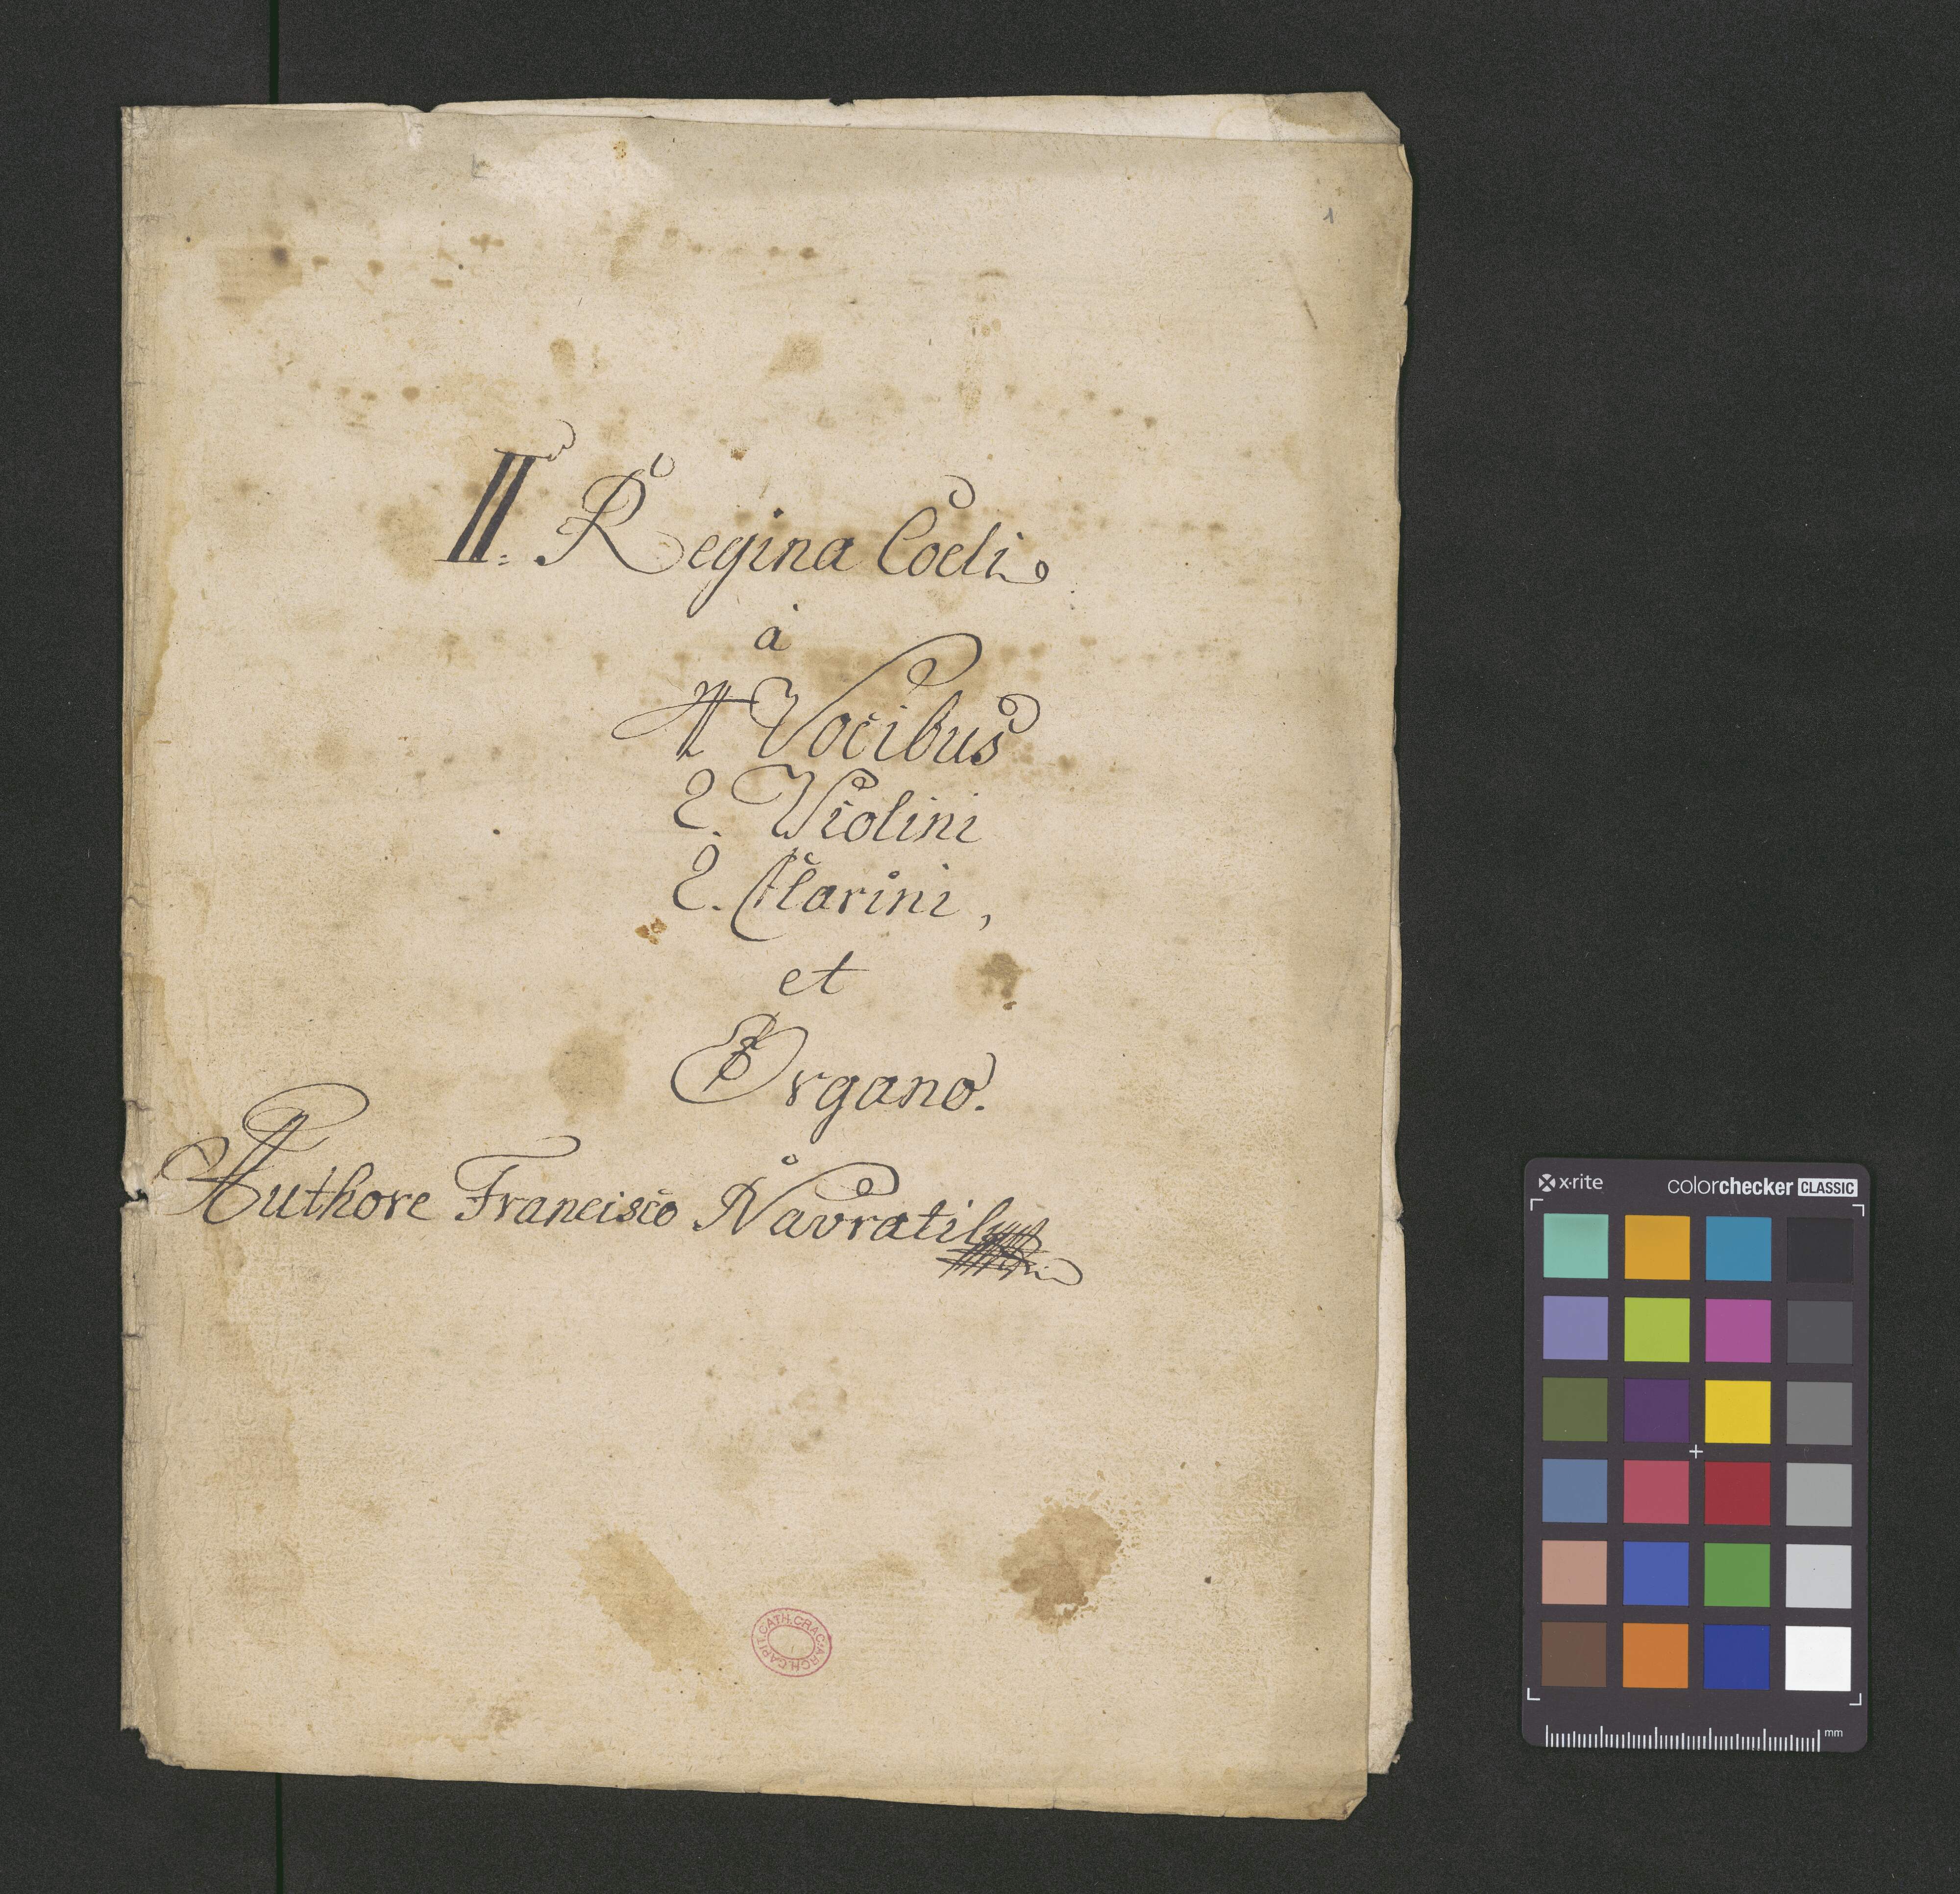 1
II. Regina Coeli
à
4 Vocibus
2. Violini
2. Clarini,
et
Organo.
Authore Francisco Navratil
ARCH.CAPIT.CATH.CRAC.
x·rite colorchecker CLASSIC
mm